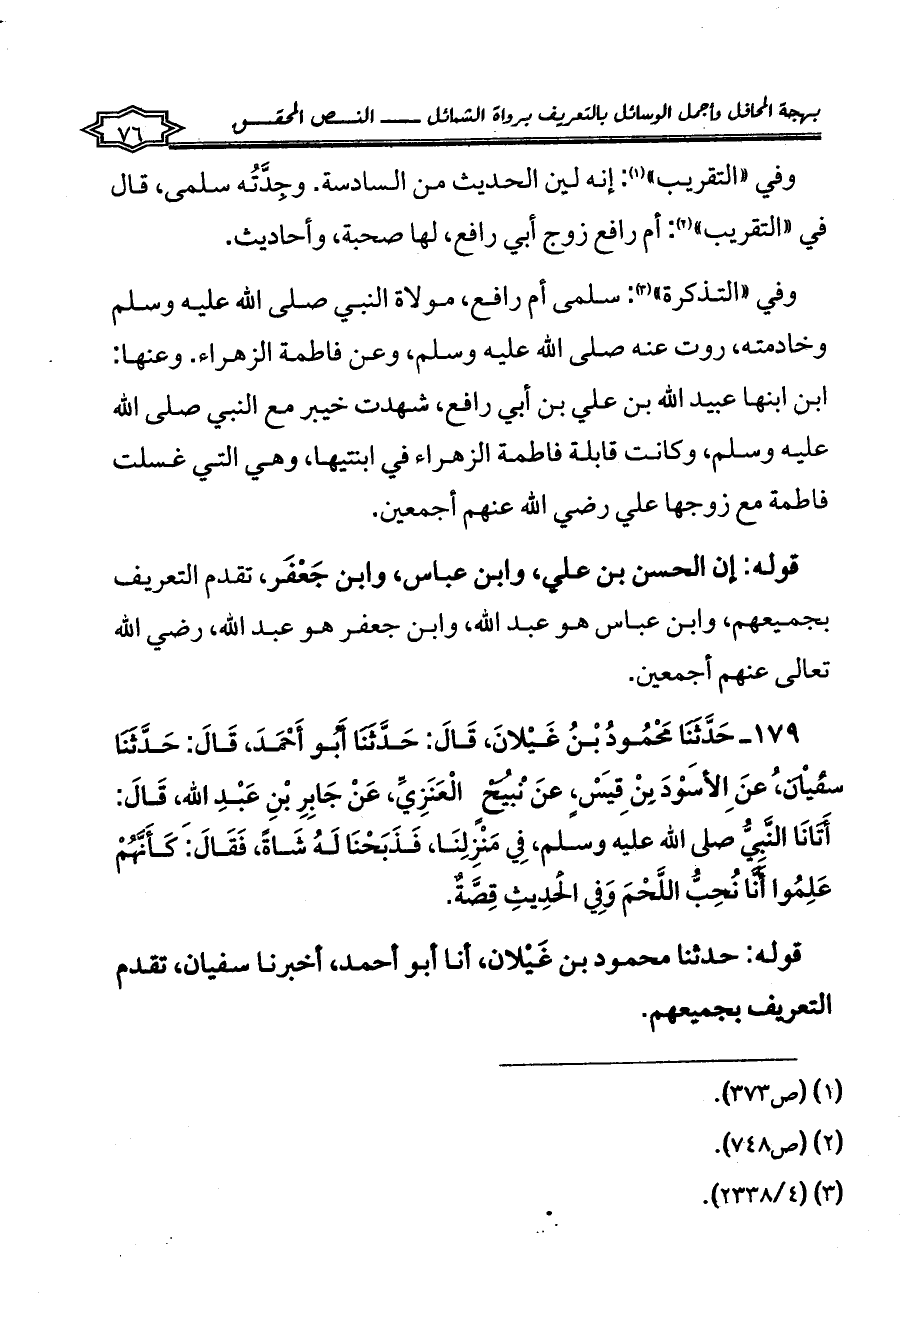 بهجة المحافل وأجمل الوسائل بالتعريف برواة الشمائل ـــــ النـص المحقـق
٧٦
وفي «التقريب»(١): إنه لين الحديث من السادسة. وجِدَّتُه سلمى، قال
في «التقريب»(٢): أم رافع زوج أبي رافع، لها صحبة، وأحاديث.
وفي «التذكرة»(٣): سلمى أم رافع، مولاة النبي صلى الله عليه وسلم
وخادمته، روت عنه صلى الله عليه وسلم، وعن فاطمة الزهراء. وعنها:
ابن ابنها عبيد الله بن علي بن أبي رافع، شهدت خيبر مع النبي صلى الله
عليه وسلم، وكانت قابلة فاطمة الزهراء في ابنتيها، وهي التي غسلت
فاطمة مع زوجها علي رضي الله عنهم أجمعين.
قوله: إن الحسن بن علي، وابن عباس، وابن جَعْفَر، تقدم التعريف
بجميعهم، وابن عباس هو عبد الله، وابن جعفر هو عبد الله، رضي الله
تعالى عنهم أجمعين.
١٧٩ـ حَدَّثَنَا مَحْمُودُ بْنُ غَيْلانَ، قَالَ: حَدَّثَنَا أَبُو أَحْمَدَ، قَالَ: حَدَّثَنَا
سفْيانَ، عَنِ الأَسْوَدِ بْنِ قيَسٍ، عَنْ نُبيْحٍ الْعَنَزِيِّ، عَنْ جَابِرِ بْنِ عَبْدِ الله، قَالَ:
أَتَانَا النَّبِيُّ صلى الله عليه وسلم، فِي مَنْزِلِنَا، فَذَبَحْنَا لَهُ شَاةً، فَقَالَ: كَأَنَّهُمْ
عَلِمُوا أَنَّا نُحِبُّ اللَّحْمَ وَفِي الْحَدِيثِ قِصَّةٌ.
قوله: حدثنا محمود بن غَيْلان، أنا أبو أحمد، أخبرنا سفيان، تقدم
التعريف بجميعهم.
(١) (ص٣٧٣).
(٢) (ص٧٤٨).
(٣) (٤/٢٣٣٨).